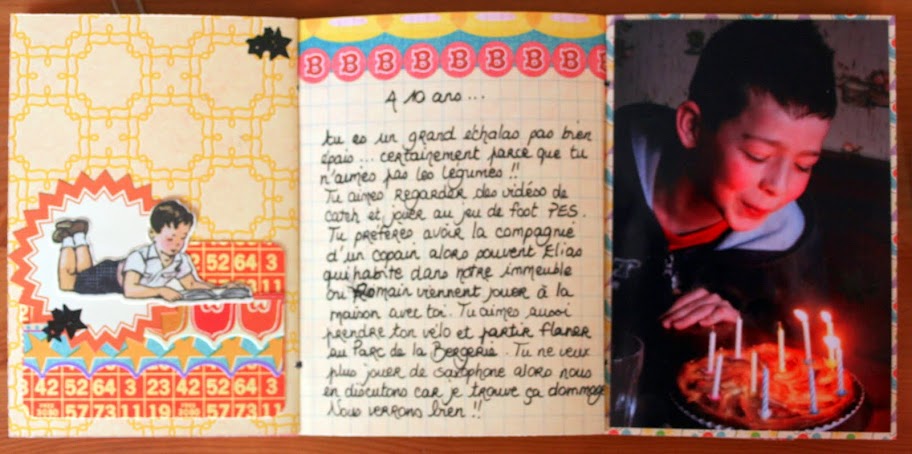 52 64 3
11
42 52 64 3 23 42 52 64 3
57 73 11 19 57 73 11
B B B B B B B B B
A 10 ans...
tu es un grand echalas pas bien
épais... certainement parce que tu
n'aimes pas les légumes !!
Tu aimes regarder des vidéos de
catch et jouer au jeu de foot PES.
Tu préfères avoir la compagnie
d'un copain alors souvent Elias
qui habite dans notre immeuble
ou Romain viennent jouer à la
maison avec toi. Tu aimes aussi
prendre ton vélo et partir flaner
au Parc de la Bergerie. Tu ne veux
plus jouer de saxophone alors nous
en discutons car je trouve ça dommage
Nous verrons bien !!